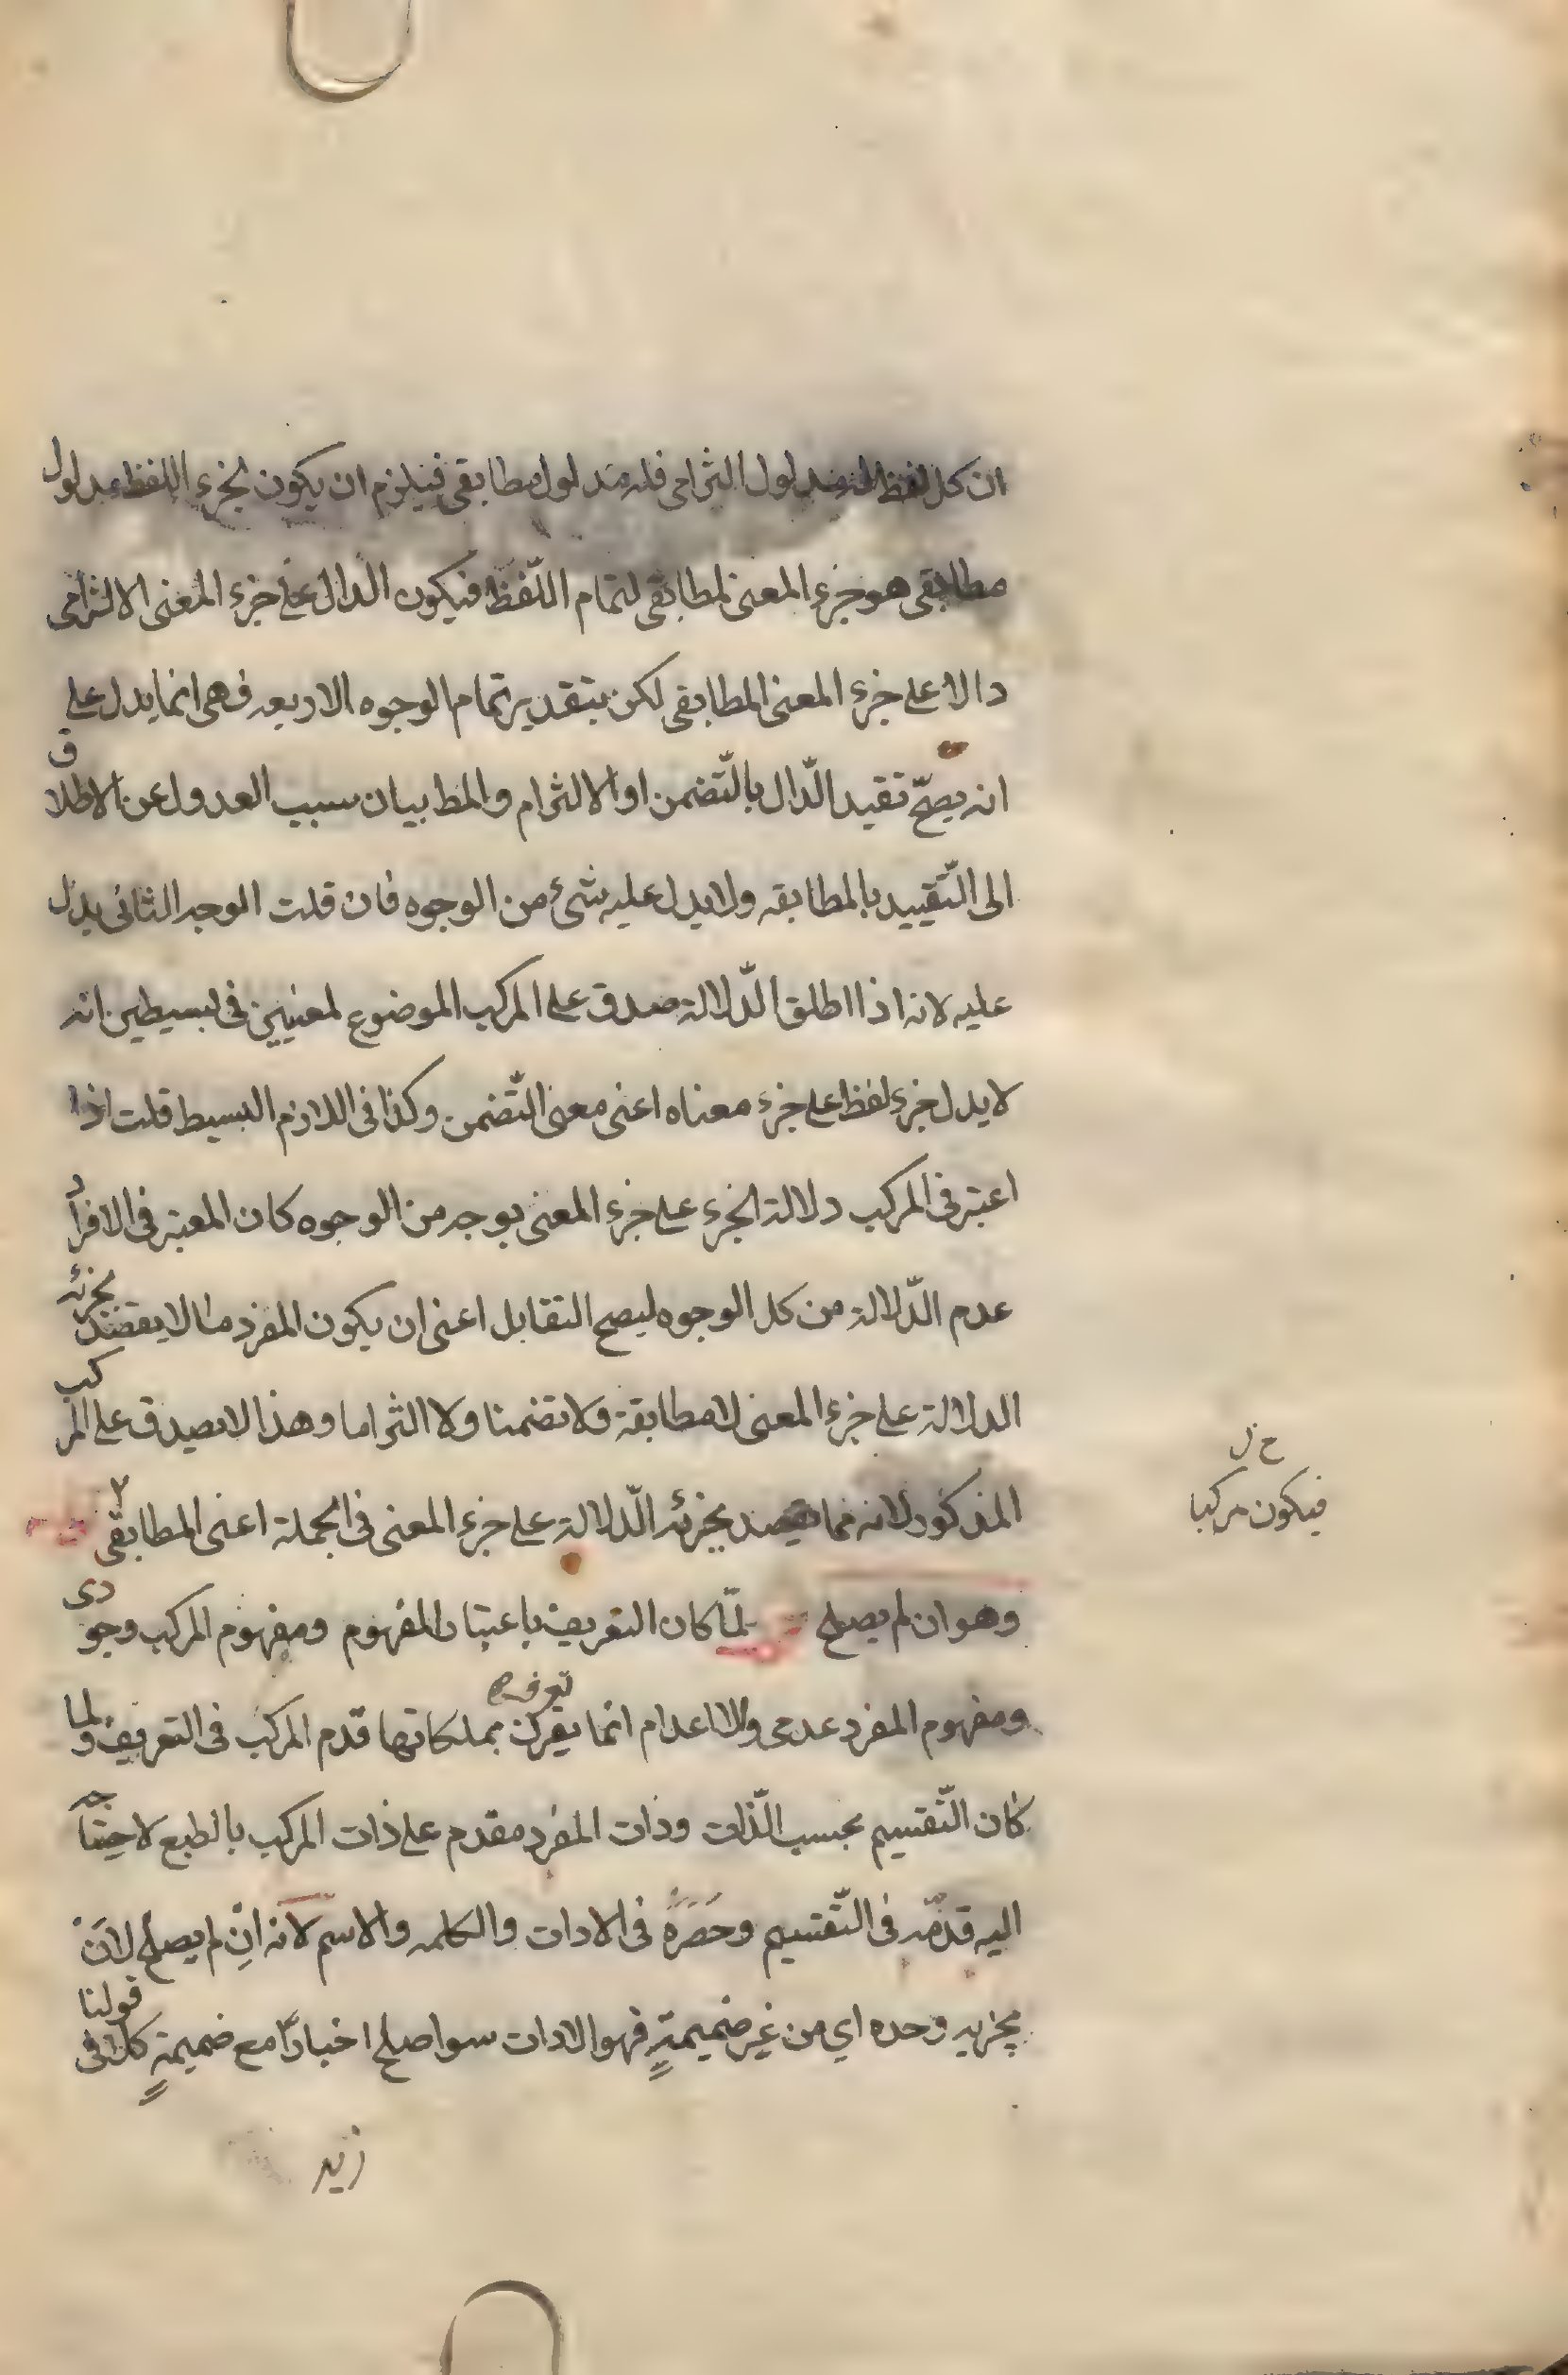 ان كل لفظ له مدلول التزامى فله مدلول مطابقى فيلزم ان يكون لجزء اللفظ مدلول
مطابقى هو جزء المعنى لمطابقى لتمام اللّفظ فيكون الدال على جزء المعنى الالتزامى
دالا على جزء المعنى المطابقى لكن بتقدير تمام الوجوه الاربعه فهى انما يدل على
انه يصحّ تقيد الدّال بالتّضمن او الالتزام والمط بيان سبب العدول عن الاطلاق
الى التّقييد بالمطابقه ولا يدل عليه شئ من الوجوه فان قلت الوجه الثانى يدل
عليه لانه اذا اطلق الدّلالة صدق على المركب الموضوع لمعنيين فى بسيطين انه
لا يدل جزء لفظ على جزء معناه اعنى معنى التّضمن وكذا فى اللازم البسيط قلت اذا
اعتبر فى المركب دلالة الجزء على جزء المعنى بوجه من الوجوه كان المعتبر فى الافراد
عدم الدّلالة من كل الوجوه ليصح التقابل اعنى ان يكون المفرد ما لا يقصد بجزئه
الدلالة على جزء المعنى لا مطابقة ولا تضمنا ولا التزاما وهذا لا يصدق على المركب
المذكور لانه مما يقصد بجزئه الدّلالة على جزء المعنى فى الجملة اعنى المطابقى
ح ل
فيكون مركبا
وهو ان لم يصلح لمّا كان التعريف باعتبار المفهوم ومفهوم المركب وجودى
ومفهوم المفرد عدمى والا اعدام انما يعرف بملكاتها قدّم المركب فى التعريف ولما
كان التّقسيم بحسب الذّات وذات المفرد مقدم على ذات المركب بالطبع لاحتياجه
اليه قدّمه فى التّقسيم وحصره فى الادات والكلمه والاسم لانه ان لم يصلح لان
يخبر به وحده اي من غير ضميمةٍ فهو الادات سوا صلح اخبارًا مع ضميمةٍ كلا فى قولنا
زيد